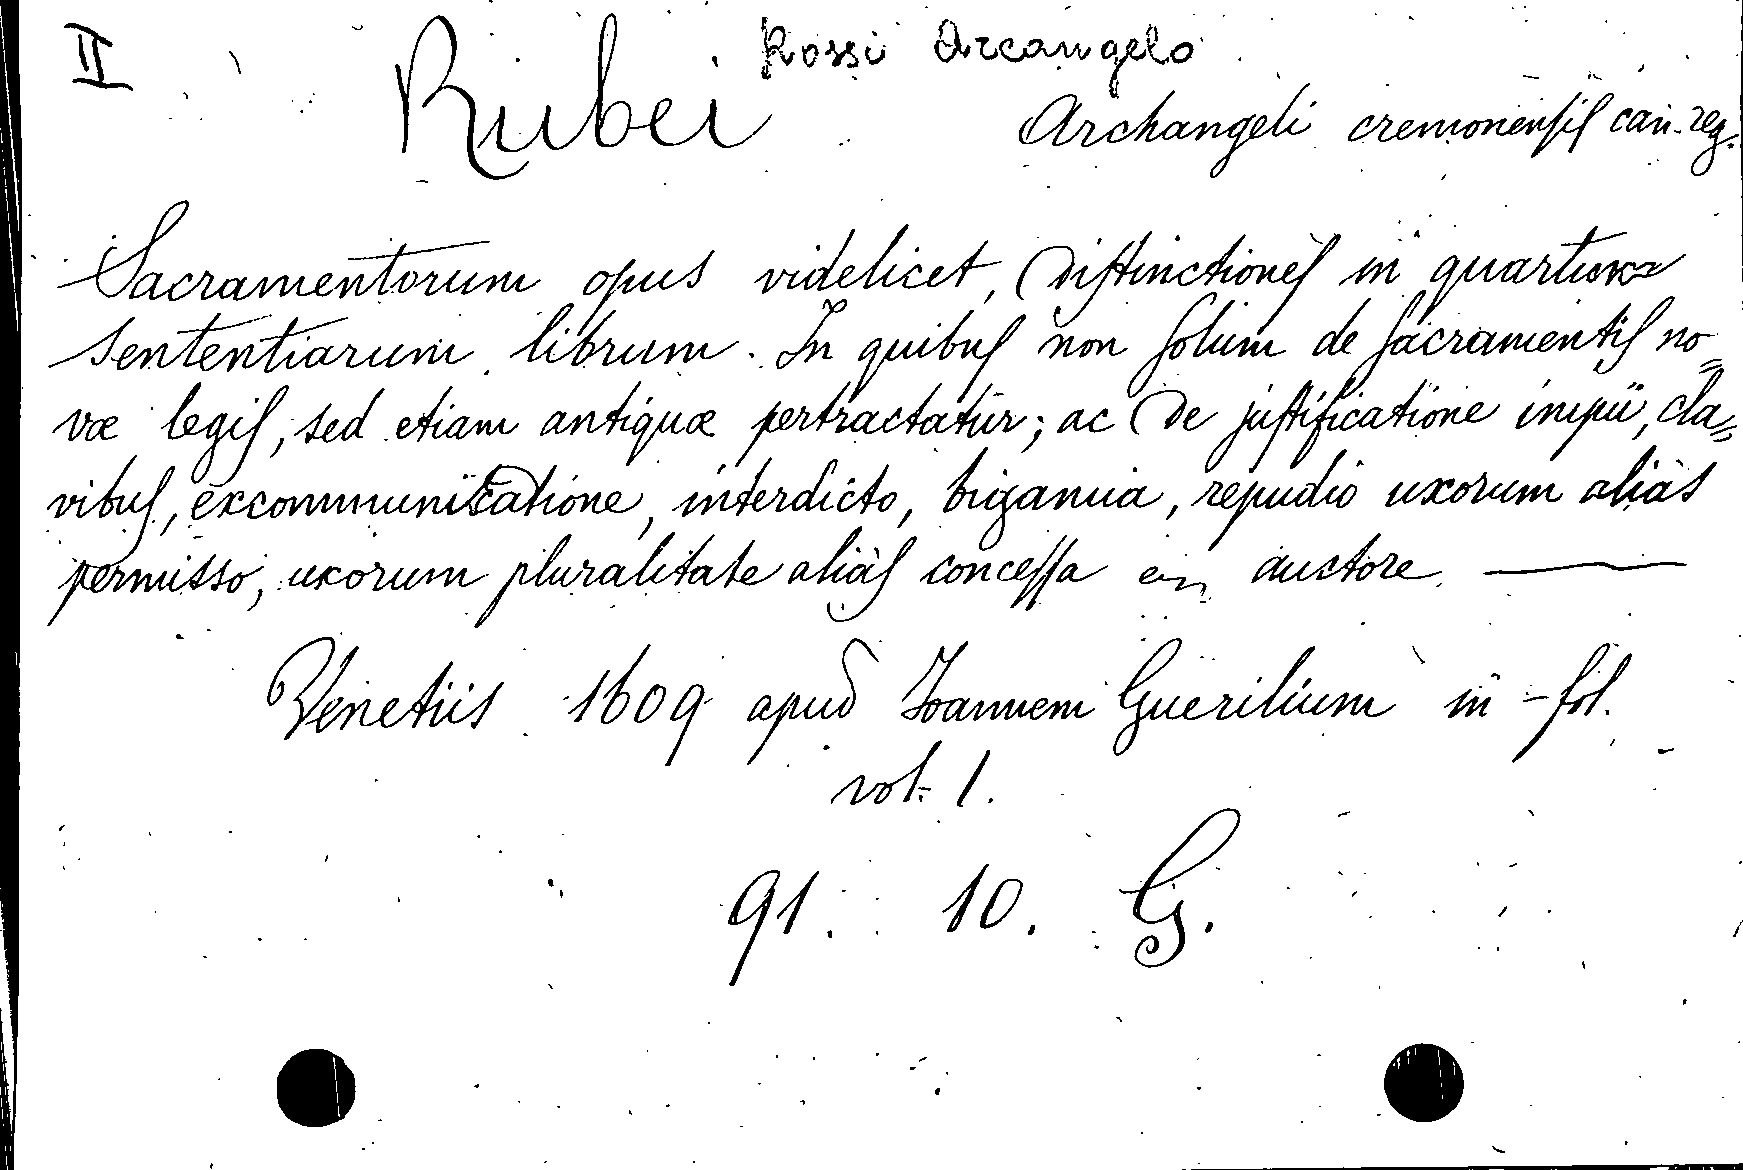 II Rubei Rossi Arcangelo
Archangeli cremonensis can. reg.
Sacramentorum opus videlicet, Distinctiones in quartum
sententiarum librum. In quibus non solum de sacramentis no=
væ legis, sed etiam antiquæ pertractatur; ac De justificatione impii, cla=
vibus, excommunicatione, interdicto, bigamia, repudio uxorum aliàs
permisso, uxorum pluralitate aliàs concessa auctore
Venetiis 1609 apud Ioannem Guerilium in-fol.
vol. 1.
91. 10. G.